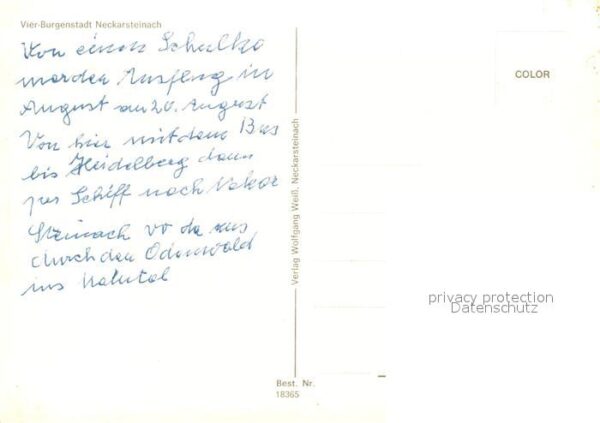 Vier-Burgenstadt Neckarsteinach
Von einem Schulka
meraden Ausflug in
August am 20. August
Von hier mit dem Bus
bis Heidelberg dann
per Schiff nach Nekar
Steinach vo da aus
durch den Odenwald
ins
COLOR
Verlag Wolfgang Weiß, Neckarsteinach
privacy protection
Datenschutz
Best. Nr.
18365